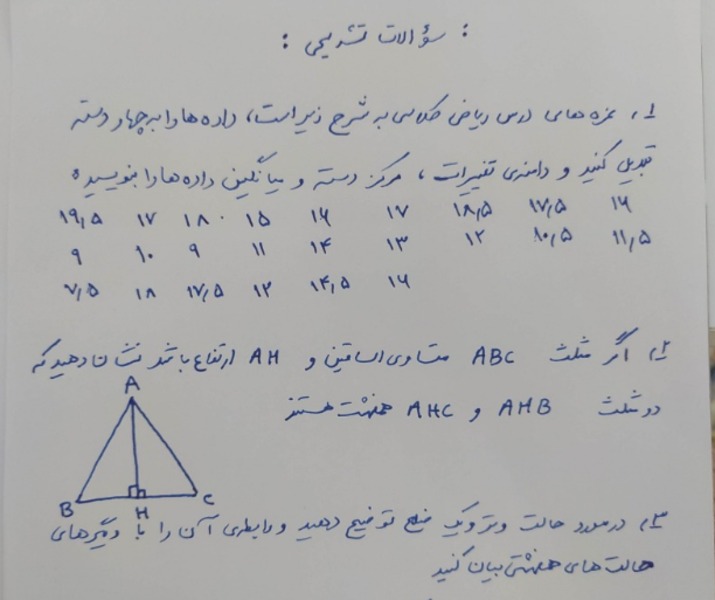 سؤالات تشریحی :
۱. نمره های درس ریاضی کلاسی به شرح زیر است، داده ها را به چهار دسته
تبدیل کنید و دامنه‌ی تغییرات ، مرکز دسته و میانگین داده ها را بنویسید.
۱۹,۵ ۱۷ ۱۸ ۱۵ ۱۶ ۱۷ ۱۸,۵ ۱۷,۵ ۱۶
۹ ۱۰ ۹ ۱۱ ۱۴ ۱۳ ۱۲ ۱۰,۵ ۱۱,۵
۷,۵ ۱۸ ۱۷,۵ ۱۲ ۱۴,۵ ۱۶
۲. اگر مثلث ABC متساوی الساقین و AH ارتفاع باشد نشان دهید که
دو مثلث AHB و AHC همنهشت هستند
A
B H C
۳. در مورد حالت وتر و یک ضلع توضیح دهید و رابطه‌ی آن را با دیگرهای
حالت های همنهشتی بیان کنید